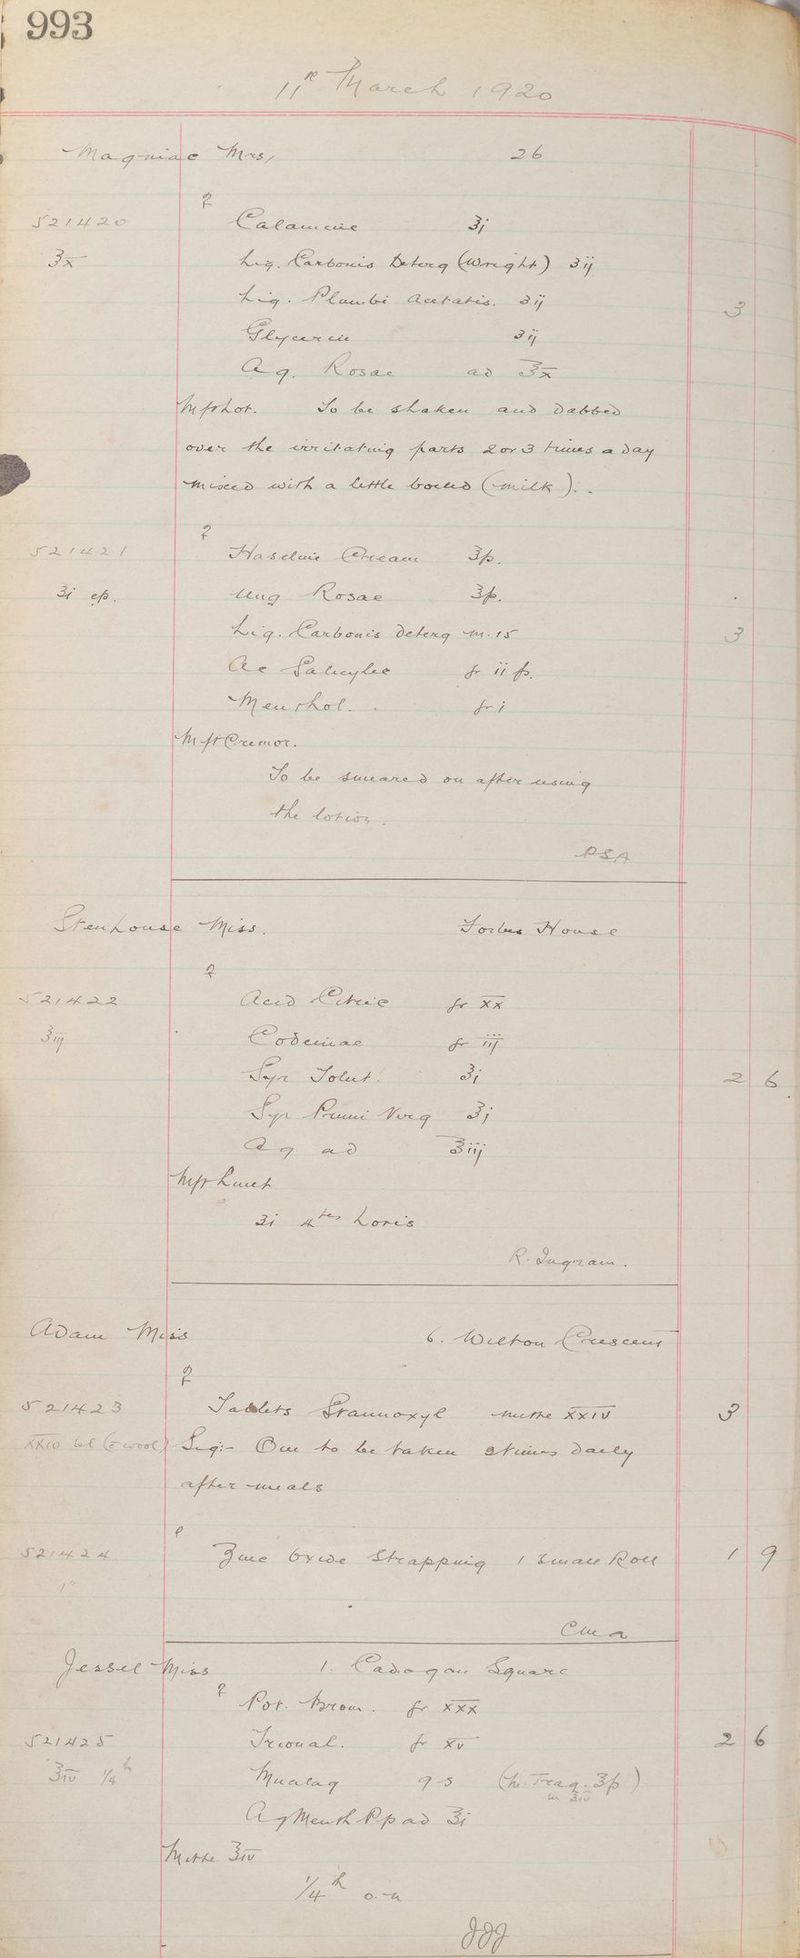 993
11th March 1920
Magniac Mrs, 26
℞
521420 Calamine ʒj
℥x Liq. Carbonis Deterg (Wright) ʒij
Liq. Plumbi Acetatis. ʒij 3
Glycerin ʒij
Aq. Rosae ad ℥x
M ft Lot. To be shaken and dabbed
over the irritating parts 2 or 3 times a day
mixed with a little boiled (milk).
℞
521421 Haseline Cream ℥ß.
℥i cp. Ung Rosae ℥ß.
Liq. Carbonis Deterg m. 15 3
Ac Salicylic gr ii ß.
Menthol. gr i
M ft Cremor.
To be smeared on after using
the lotion.
PSA
Stenhouse Miss. Forbes House
℞
521422 Acid Citric gr xx
℥iij Codeinae gr iij
Syr Tolut. ℥j 2 6
Syr Pruni Virg ℥j
Aq ad ℥iij
M ft Linct
ʒi 4tis horis
R. Ingram.
Adam Miss 6. Wilton Crescent
℞
521423 Tablets Stannoxyl mitte XXIV 3
Sig:- One to be taken 3 times daily
after meals
521424 Zinc Oxide Strapping 1 small Roll 1 9
1"
Jessel Miss 1. Cadogan Square
℞ Pot. Brom. gr xxx
521425 Trional. gr xv 2 6
℥iv 1/4th Mucilag q-s (Mu. Trag. ℥ß)
in ℥iv
Aq Menth Pp ad ℥i
Mitte ℥iv
1/4th o.n
JJJ